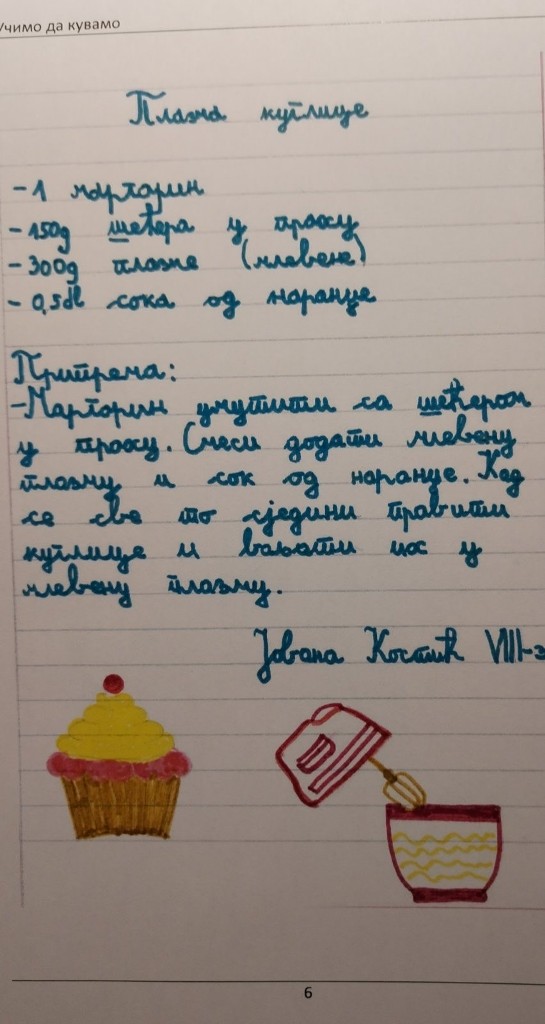 Учимо да кувамо
Плазма куглице
- 1 маргарин
- 150g шећера у праху
- 300g плазме (млевене)
- 0,5dl сока од наранџе
Припрема:
- Маргарин умутити са шећером
у праху. Смеси додати млевену
плазму и сок од наранџе. Кад
се све то сједини правити
куглице и ваљати их у
млевену плазму.
Јована Костић VIII-3
6